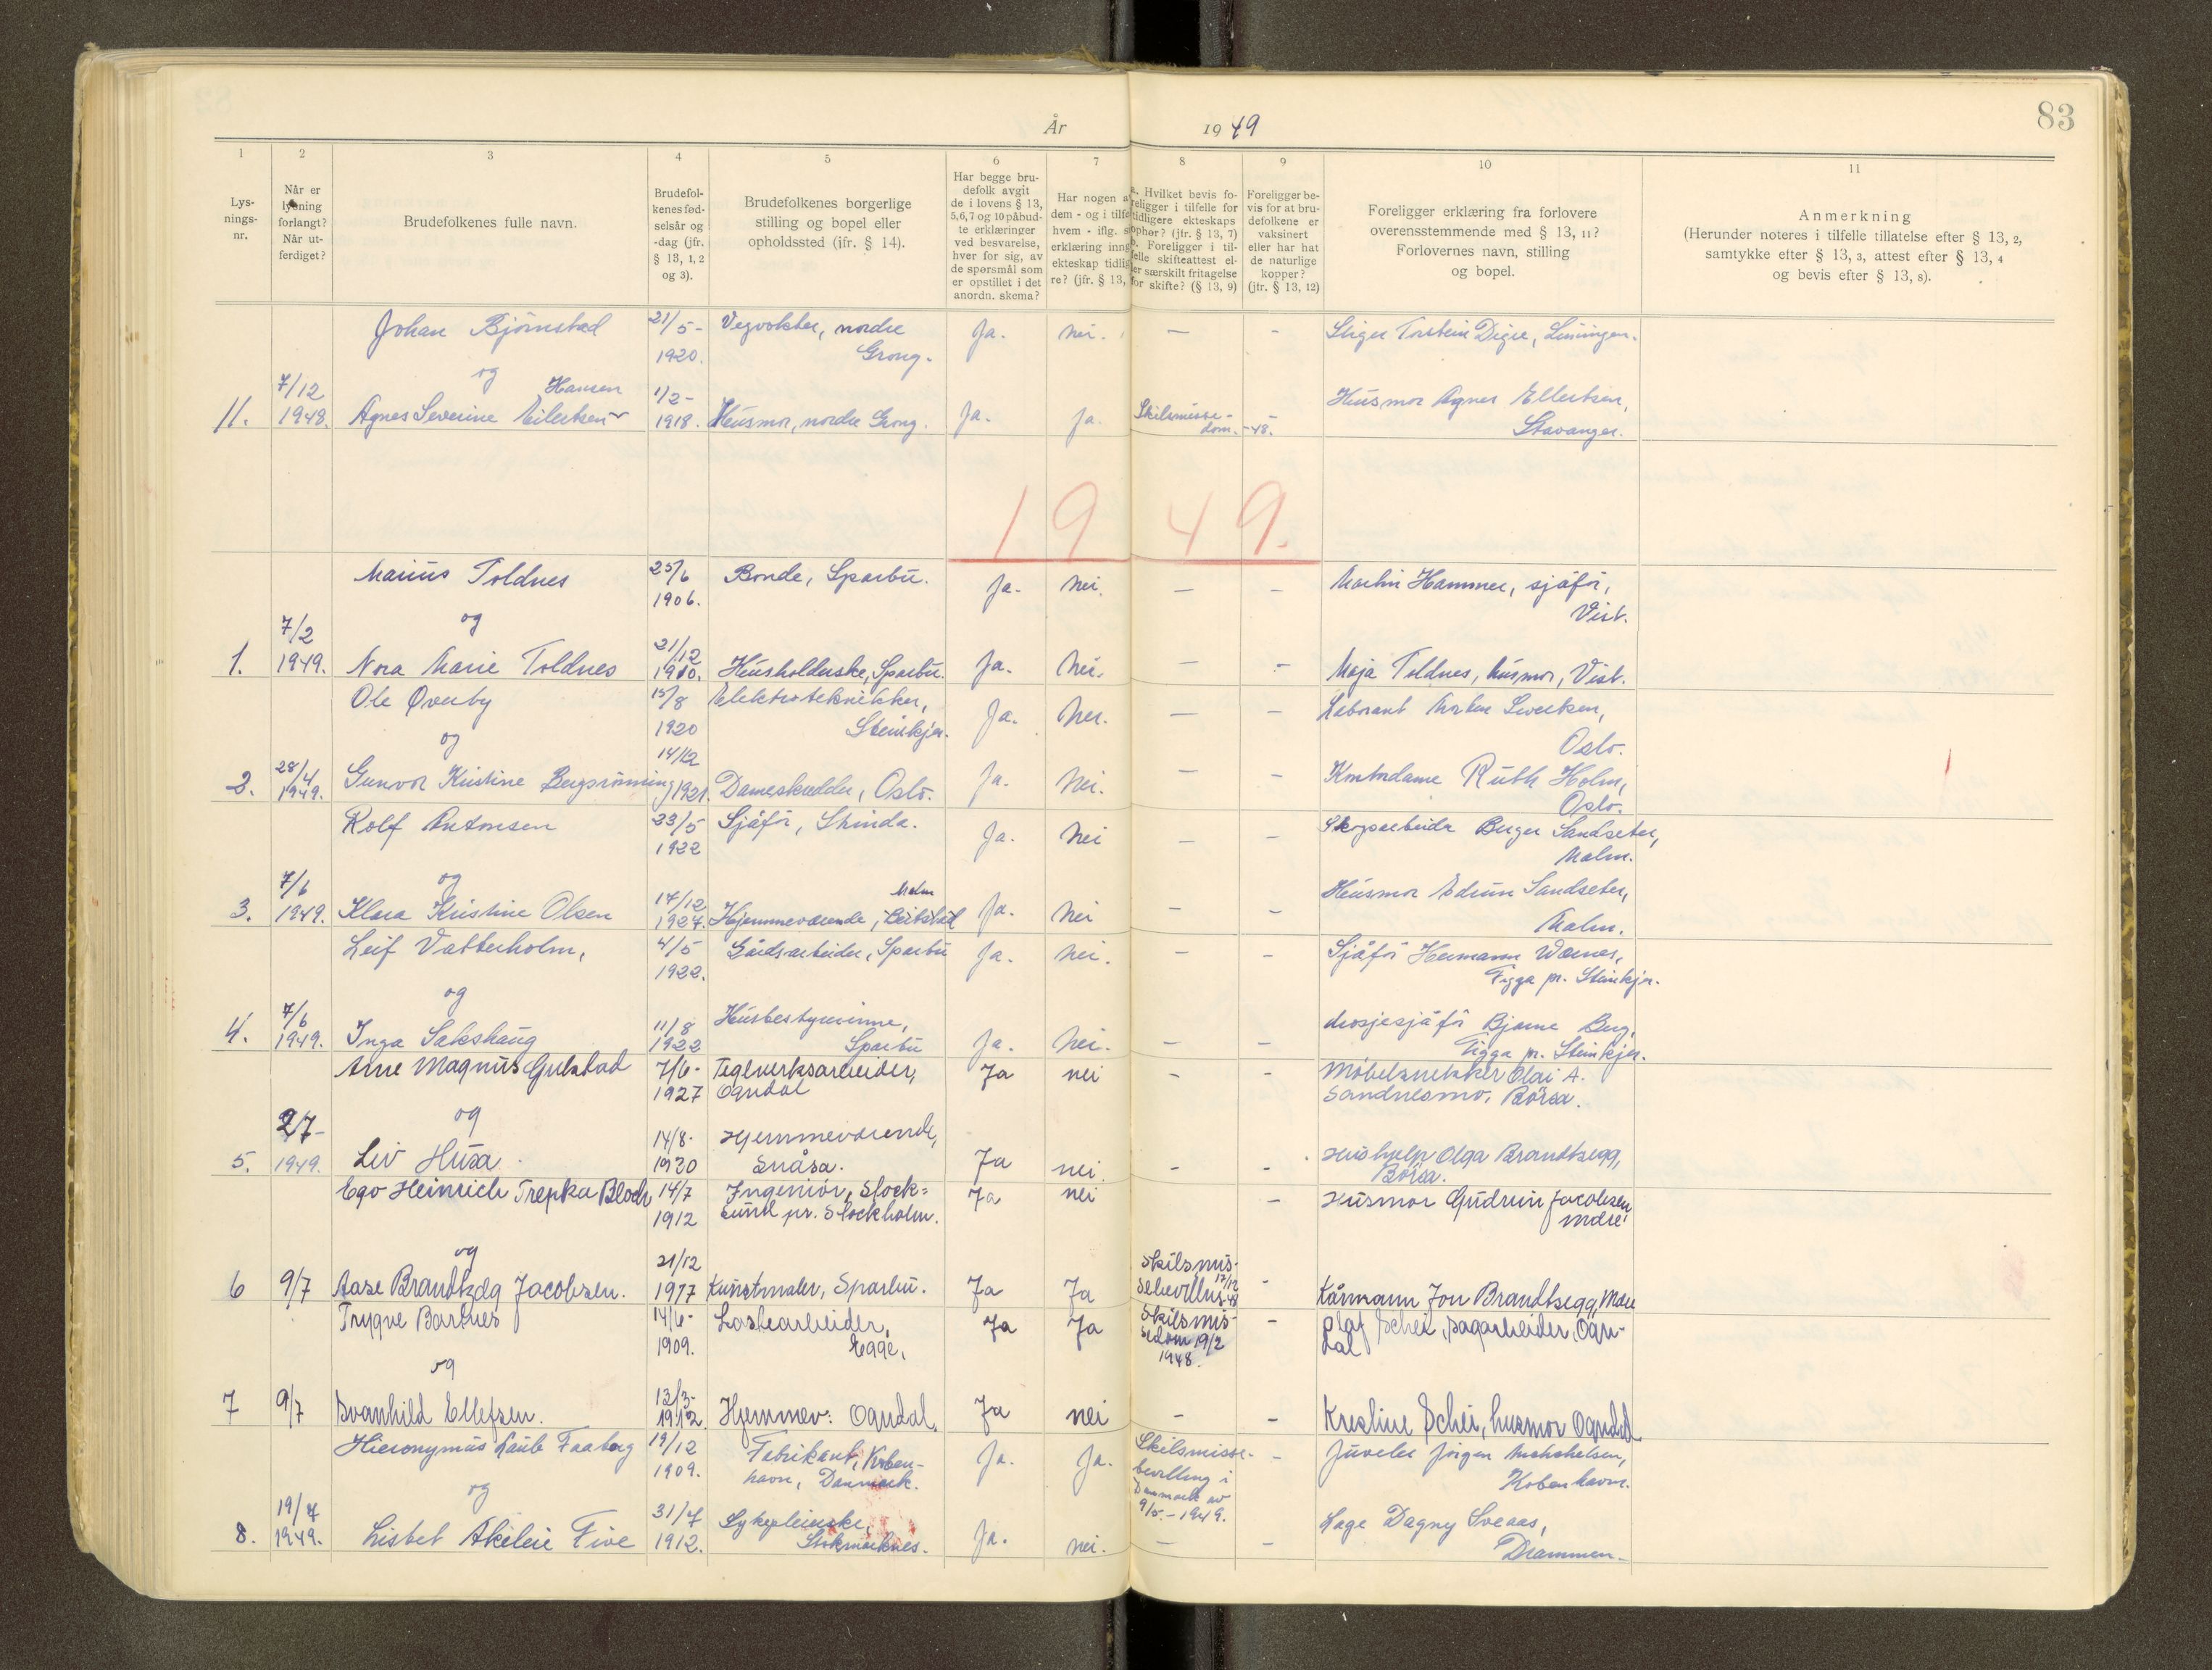 83
År 1949
1
2
3
4
5
6
7
8
9
10
11
Lys-
nings-
nr.
Når er
lysning
forlangt?
Når ut-
ferdiget?
Brudefolkenes fulle navn.
Brudefol-
kenes fød-
selsår og
-dag (jfr.
§ 13, 1, 2
og 3).
Brudefolkenes borgerlige
stilling og bopel eller
opholdssted (jfr. § 14).
Har begge bru-
defolk avgit
de i lovens § 13,
5,6,7 og 10 påbud-
te erklæringer
ved besvarelse,
hver for sig, av
de spørsmål som
er opstillet i det
anordn. skema?
Har nogen a
dem - og i tilfe
hvem - iflg. s
erklæring inng
ekteskap tidlig
re? (jfr. § 13,
a. Hvilket bevis fo-
religger i tilfelle for
tidligere ekteskaps
ophør? (jfr. § 13, 7)
b. Foreligger i til-
felle skifteattest el-
ler særskilt fritagelse
for skifte? (§ 13, 9)
Foreligger be-
vis for at bru-
defolkene er
vaksinert
eller har hat
de naturlige
kopper?
(jfr. § 13, 12)
Foreligger erklæring fra forlovere
overensstemmende med § 13, 11?
Forlovernes navn, stilling
og bopel.
Anmerkning
(Herunder noteres i tilfelle tillatelse efter § 13, 2,
samtykke efter § 13, 3, attest efter § 13, 4
og bevis efter § 13, 8).
Johan Björnstad 21/5- Vegvokter, nordre Ja. nei. — - Stiger Torstein Digre,
1920. Grong.
og
7/12 Hansen 1/2- Husmor Agnes Ellertsen,
11. 1948. Agnes Severine Eilertsen 1918. Husmor, nordre Grong. Ja. Ja. Skilsmisse- -
dom. -48. Stavanger.
1949.
Marius Toldnes 25/6 Bonde, Sparbu. Ja. Nei. — - Martin Hammer, sjåför,
1906. Vist.
og
7/2 21/12
1. 1949. Nora Marie Toldnes 1910. Husholderske, Sparbu. Ja. Nei. — - Maja Toldnes, husmor, Vist.
Ole Øverby 15/8 Elektrotekniker, Ja. Nei. — - Laborant
1920 Steinkjer. Oslo.
og 14/12
28/4
2. 1949. Gunvor Kristine Bergsrönning 1921. Dameskredder, Oslo. Ja. Nei. — - Kontordame Ruth Holm,
Oslo.
Rolf Antonsen 23/5 Sjåför, Strinda. Ja. Nei — - Skogsarbeider Birger Sandseter,
1922 Malm.
og
7/6 17/12 Malm Husmor Edrun Sandseter,
3. 1949. Klara Kristine Olsen 1924. Hjemmeværende, Beitstad Ja. Nei — - Malm.
Leif Vatterholm, 4/5 Gårdsarbeider, Sparbu Ja. Nei. — - Sjåför Hermann Wærnes,
1922. Figga pr. Steinkjer.
og
7/6 11/8 Husbestyrerinne, drosjesjåför Bjarne Berg,
4. 1949. Inga Sakshaug 1922 Sparbu Ja. Nei. — - Figga pr. Steinkjer.
Arne Magnus Gulstad 7/6- Teglverksarbeider, Ja nei - - Möbelsnekker Olai A.
1927 Ogndal Sandnesmo, Börsa.
og
2/7- 14/8- Hjemmeværende,
5. 1949. Liv Husa. 1920 Snåsa. Ja nei. - - Hushjelp Olga Brandtsegg,
Börsa.
Ego Heinrich Trepka Bloch 14/7 Ingeniör, Stock= Ja nei - Husmor Gudrun Jacobsen
1912 sund pr. Stockholm. Mære
og 21/12 Skilsmis-
6 9/7 Aase Brandtzdg Jacobsen. 1917 Kunstmaler, Sparbu. Ja Ja sebevilling 17/12-48 - Kårmann Jon Brandtsegg, Mære
Trygve Bartnes 14/6- Lastearbeider, Ja Ja Skilsmis- - Olaf Schei, sagarbeider, Ogn-
1909. Egge. sedom 19/2 dal
1948.
og
7 9/7 Svanhild Ellefsen. 13/3- 1912. Hjemmev: Ogndal. Ja nei - - Krestine Schei, husmor Ogndal
Hieronymus Laub Faaborg 19/12 Fabrikant, Köben- Ja. Ja. Skilsmisse- - Juveler Jörgen Michelsen,
1909. havn, Danmark. bevilling i Köbenhavn.
og Danmark av
19/7 31/7 Sykepleierske, 9/5-1949. Lege Dagny Sveaas,
8. 1949. Lisbet Akeleie Five 1912. Stokmarknes. Ja. nei. — - Drammen.